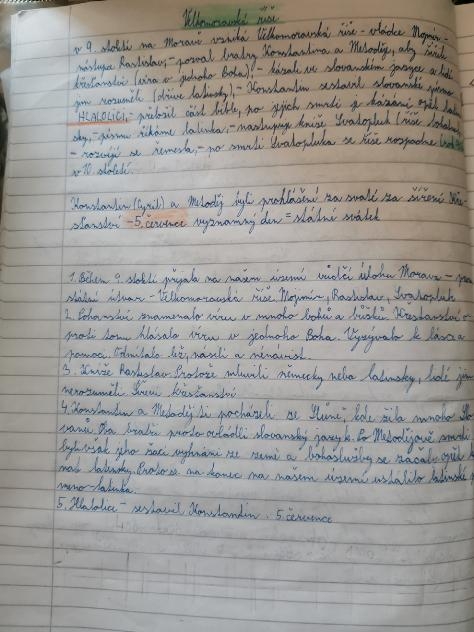 Velkomoravská říše
v 9. století na Moravě vzniká Velkomoravská říše - vládce Mojmír -
nástupce Rastislav, - pozval bratry Konstantina a Metoděje, aby šířili
křesťanství (víra v jednoho Boha), - kázali ve slovanském jazyce a lidé
jim rozuměli (dříve latinsky), - Konstantin sestavil slovanské písmo
HLAHOLICI, - přeložil část bible, po jejich smrti je kázání opět latin-
sky, - písmu říkáme latinka, - nastupuje kníže Svatopluk (říše
- rozvíjí se řemesla, - po smrti Svatopluka se říše rozpadne
v 10. století.
Konstantin (Cyril) a Metoděj byli prohlášeni za svaté za šíření kře-
sťanství - 5. července významný den = státní svátek
1. Během 9. století přijala na našem území vůdčí úlohu Morava -
státní útvar - Velkomoravská říše. Mojmír, Rastislav, Svatopluk
2. Pohanství znamenalo víru v mnoho bohů a bůžků. Křesťanství o-
proti tomu hlásalo víru v jednoho Boha. Vyzývalo k lásce a
pomoci. Odmítalo lež, násilí a nenávist.
3. Kníže Rastislav. Protože mluvili německy nebo latinsky, lidé jim
nerozuměli. Šíření křesťanství
4. Konstantin a Metoděj si pocházeli ze Soluně, kde žila mnoho Slo-
vanů. Oba bratři proto ovládli slovanský jazyk. Po Metodějově smrti
byli však jeho žáci vyhnáni ze země a bohoslužby se začaly opět ko-
nat latinsky. Proto se na konec na našem území ustálilo latinské pí-
smeno - latinka.
5. Hlaholice - sestavil Konstantin. 5. července